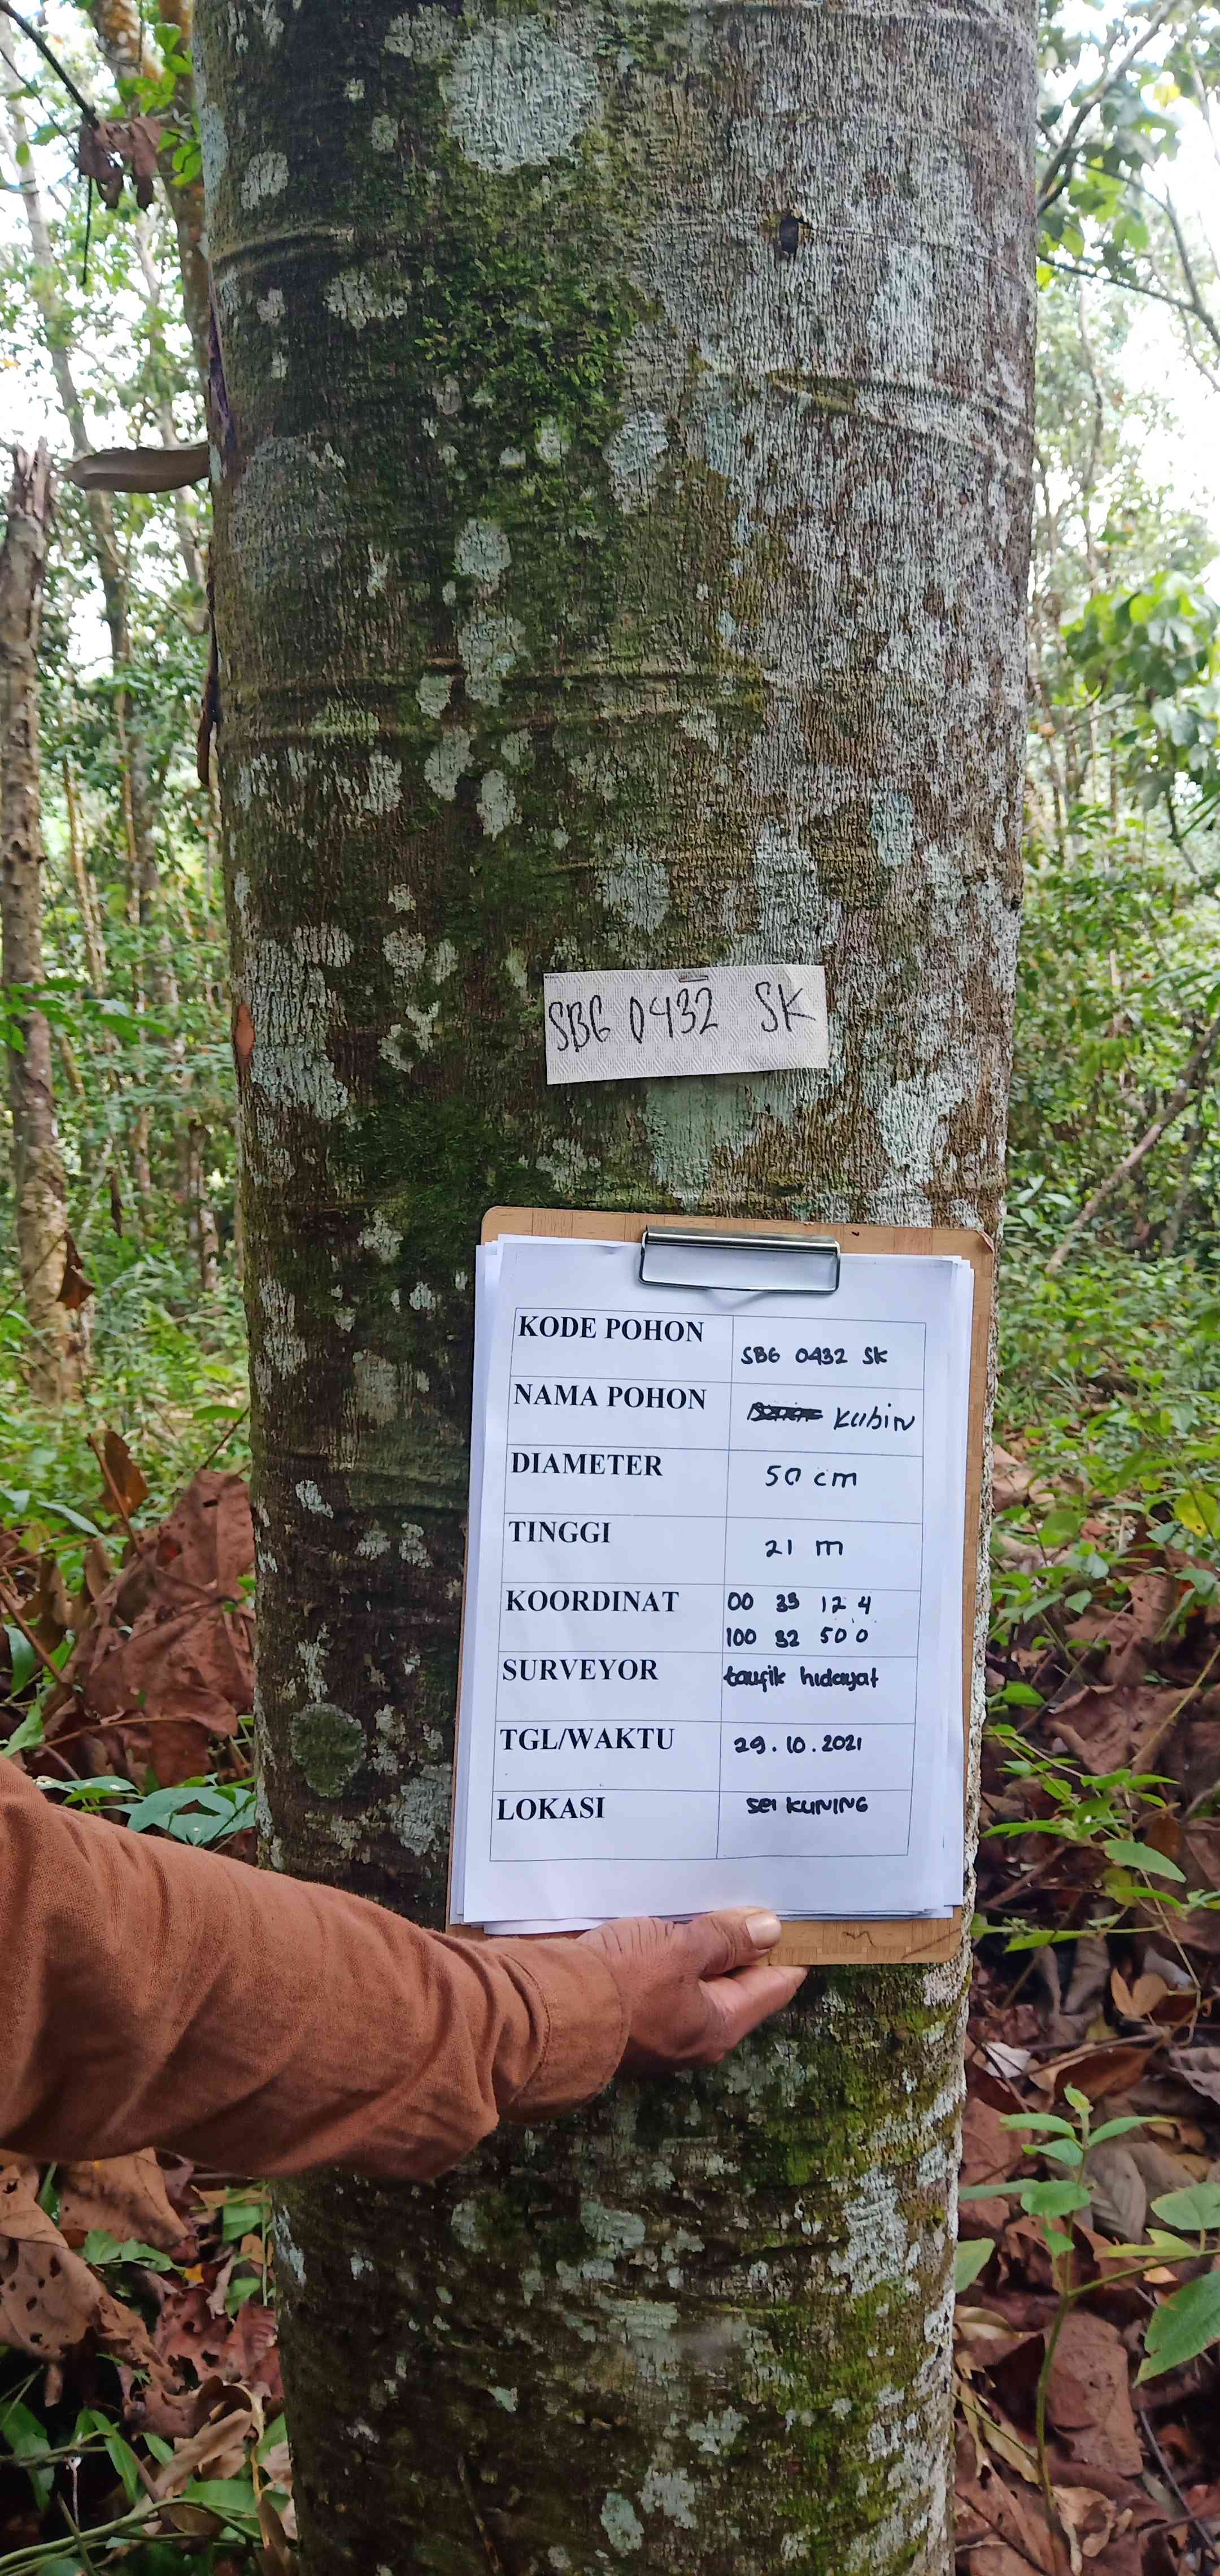 SBG 0432 SK
KODE POHON SBG 0432 SK
NAMA POHON Kubin
DIAMETER 50 cm
TINGGI 21 m
KOORDINAT 00 33 12,4
100 32 50,0
SURVEYOR taufik hidayat
TGL/WAKTU 29.10.2021
LOKASI sei KUNING